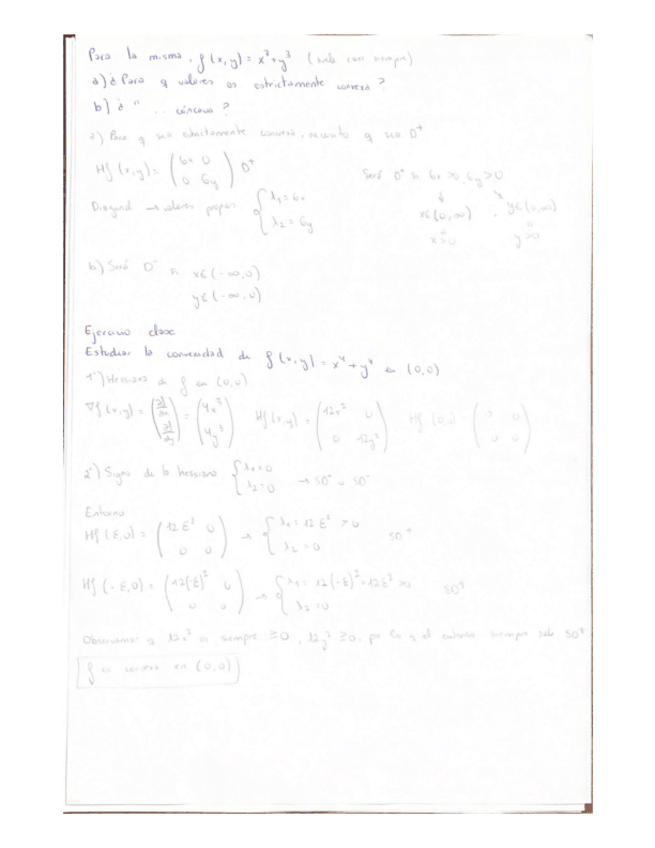 Para la misma, f(x,y) = x³+y³ (
a) ¿Para q valores es estrictamente convexa?
b) ¿ " .. cóncava?
a) Para q sea estrictamente convexa, necesito q sea D⁺
Hf(x,y) = (6x 0 / 0 6y) D⁺
Será D⁺ si 6x>0, 6y>0
Diagonal → valores propios { λ₁=6x
λ₂=6y
x∈(0,∞) , y∈(0,∞)
x>0 y>0
b) Será D⁻ si x∈(-∞,0)
y∈(-∞,0)
Ejercicio clase
Estudiar la convexidad de f(x,y) = x⁴+y⁴ en (0,0)
1º) Hessiana de f en (0,0)
∇f(x,y) = (∂f/∂x / ∂f/∂y) = (4x³ / 4y³) Hf(x,y) = (12x² 0 / 0 12y²) Hf(0,0) = (0 0 / 0 0)
2º) Signo de la hessiana { λ₁=0
λ₂=0 → SD⁺ o SD⁻
Entorno
Hf(ε,0) = (12ε² 0 / 0 0) → { λ₁=12ε²>0
λ₂=0 SD⁺
Hf(-ε,0) = (12(-ε)² 0 / 0 0) → { λ₁=12(-ε)²=12ε²>0
λ₂=0 SD⁺
Observamos q 12x² es siempre ≥0, 12y² ≥0, por lo q el entorno siempre sale SD⁺
f es convexa en (0,0)